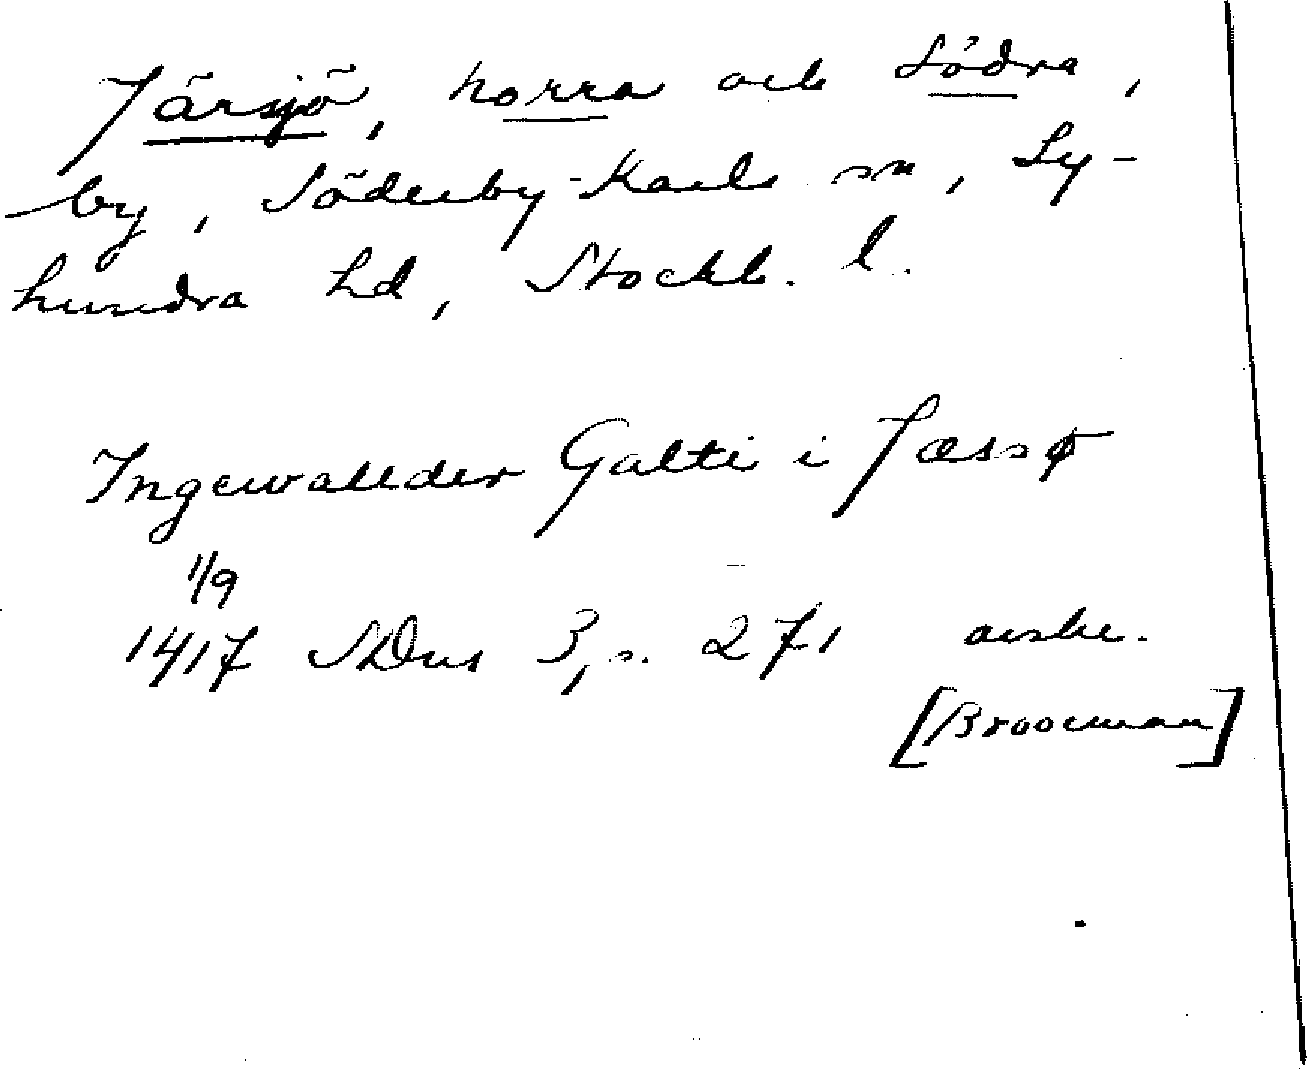 Järsjö, norra och södra,
by, Söderby-Karls sn, Ly-
hundra hd, Stockh. l.
Ingewallder Galte i Jæssø
1/9
1417 SDns 3, s. 271 avskr.
[Brooeman]